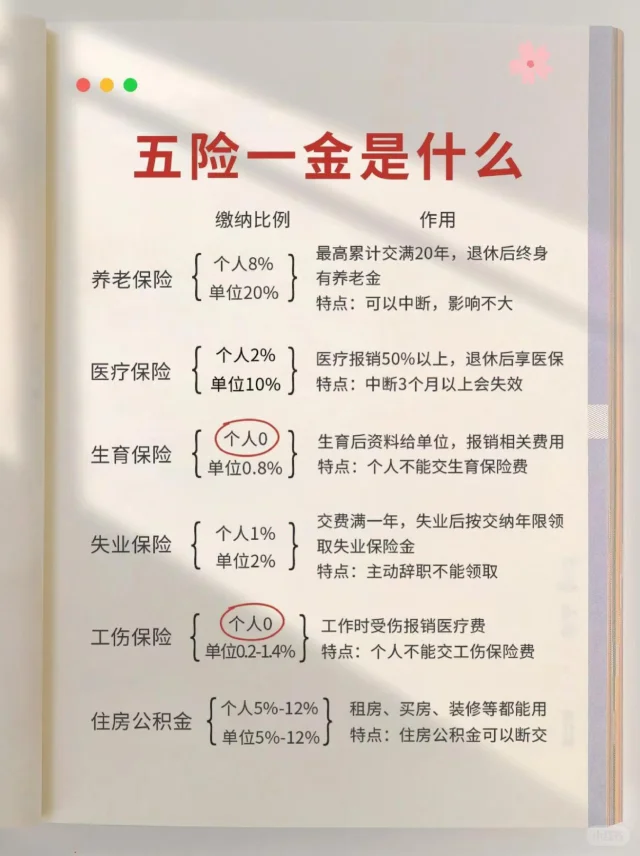 五险一金是什么
缴纳比例
作用
养老保险
个人8%
单位20%
最高累计交满20年，退休后终身
有养老金
特点：可以中断，影响不大
医疗保险
个人2%
单位10%
医疗报销50%以上，退休后享医保
特点：中断3个月以上会失效
生育保险
个人0
单位0.8%
生育后资料给单位，报销相关费用
特点：个人不能交生育保险费
失业保险
个人1%
单位2%
交费满一年，失业后按交纳年限领
取失业保险金
特点：主动辞职不能领取
工伤保险
个人0
单位0.2-1.4%
工作时受伤报销医疗费
特点：个人不能交工伤保险费
住房公积金
个人5%-12%
单位5%-12%
租房、买房、装修等都能用
特点：住房公积金可以断交